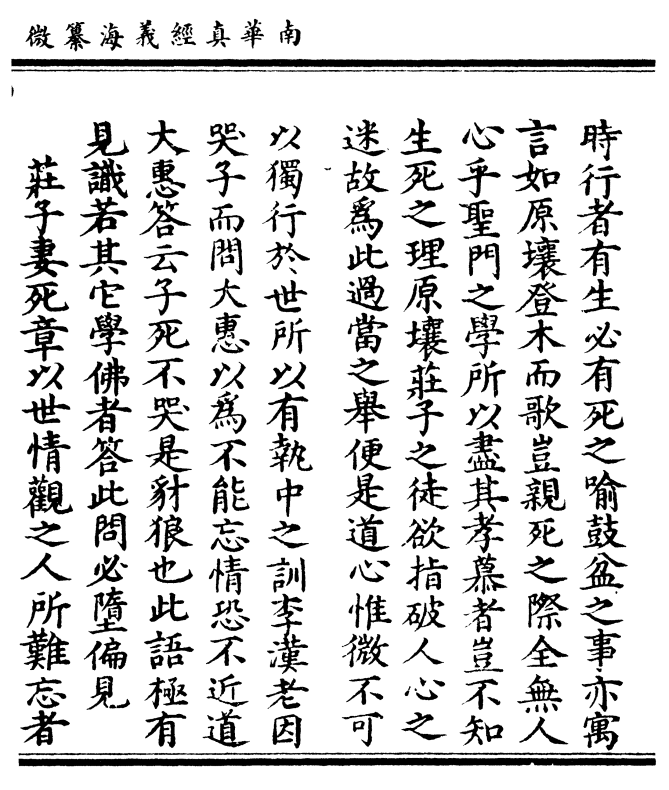 南華真經義海纂微
時行者有生必有死之喻鼓盆之事亦寓
言如原壤登木而歌豈親死之際全無人
心乎聖門之學所以盡其孝慕者豈不知
生死之理原壤莊子之徒欲指破人心之
迷故爲此過當之舉便是道心惟微不可
以獨行於世所以有執中之訓李漢老因
哭子而問大惠以爲不能忘情恐不近道
大惠答云子死不哭是豺狼也此語極有
見識若其它學佛者答此問必墮偏見
莊子妻死章以世情觀之人所難忘者